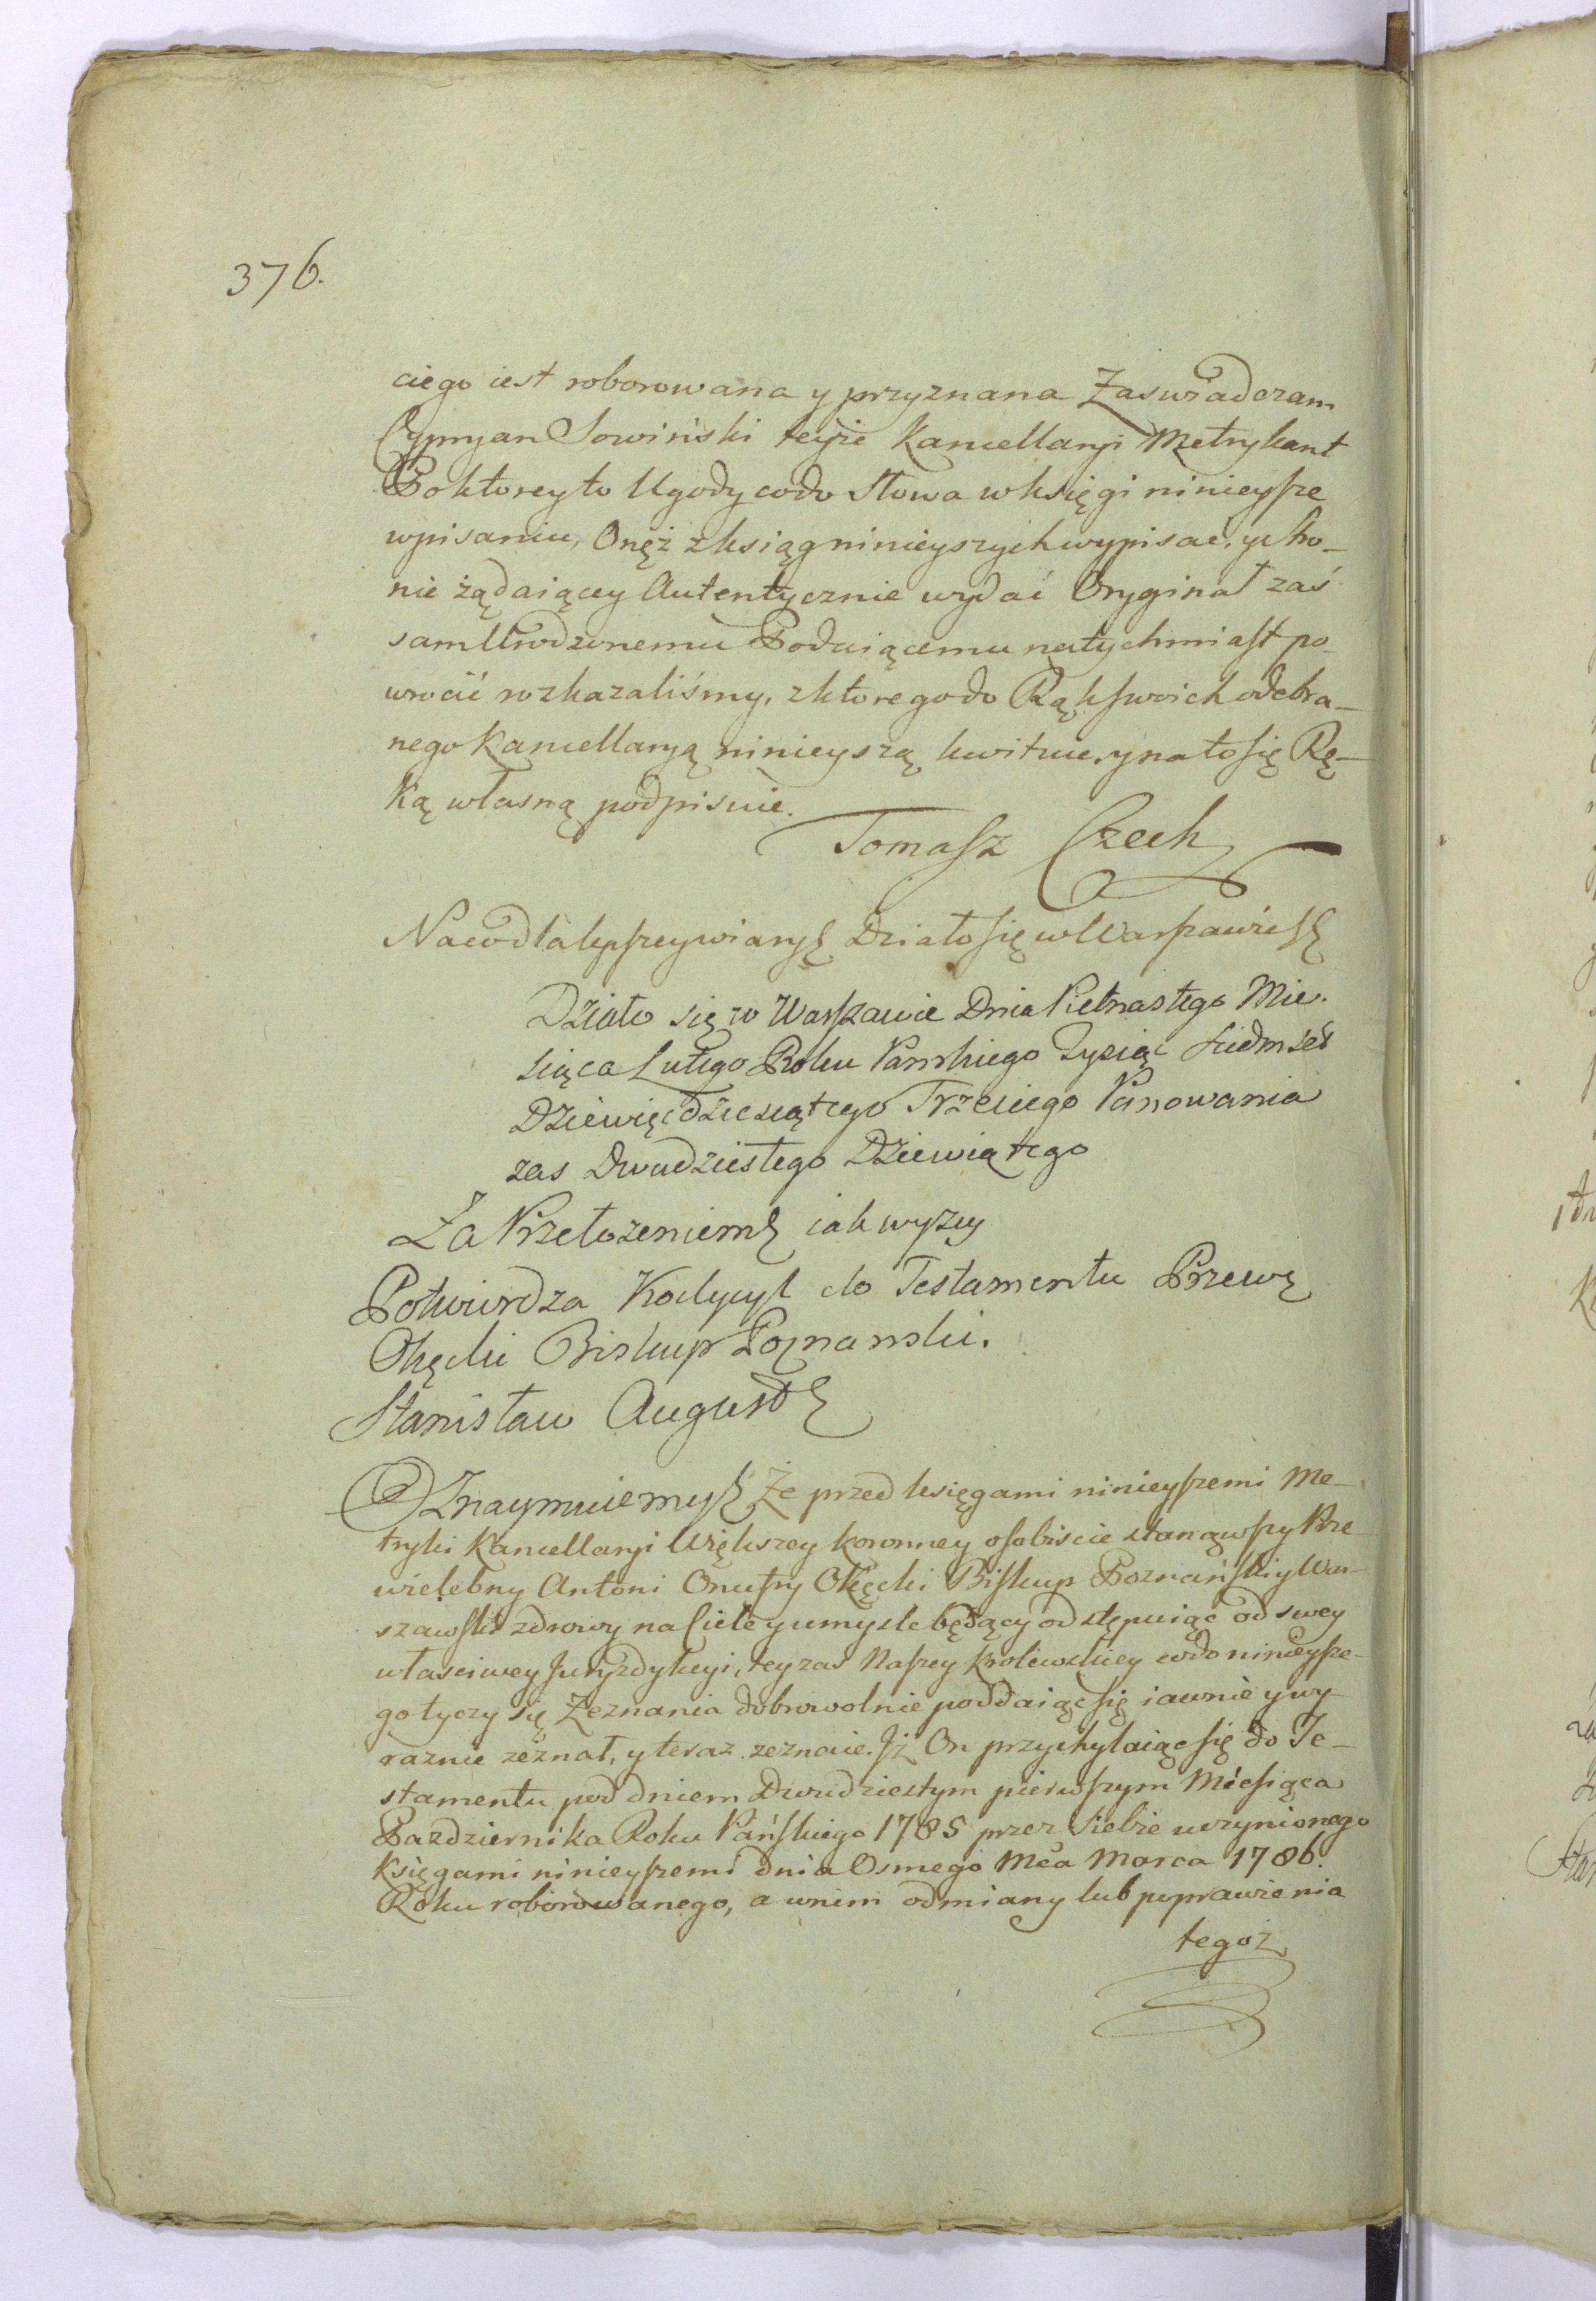 376.
ciego iest roborowana y przyznana Zaswiadczam
Cypryan Sowiński teyże Kancellaryi Metrykant
Po ktorey to Ugody co do Słowa w księgi ninieysze
wpisaniu, Onęż z ksiąg ninieyszych wypisać, y stro-
nie żądaiącey Autentycznie wydać Oryginał zaś
sam Urodzonemu Podaiącemu natychmiast po-
wrocić rozkazaliśmy, z ktorego do Rąk swoich odebra-
nego Kancellaryą ninieyszą kwituie, y na to się Rę-
ką własną podpisuie.
Tomasz Czech
Na co dla lepszey wiary Działo się w Warszawie
Działo się w Warszawie Dnia Pietnastego Mie-
siąca Lutego Roku Panskiego Tysiąc Siedmset
Dziewięcdziesiątego Trzeciego Panowania
zas Dwudziestego Dziewiątego
Za Przełozeniem iak wyzey
Potwierdza Kodycyl do Testamentu Przew
Okęcki Biskup Poznanski.
Stanisław August
Oznaymuiemy Że przed księgami ninieyszemi Me-
tryki Kancellaryi Większey koronney osobiscie stanąwszy Prze-
wielebny Antoni Onufry Okęcki Biskup Poznański y War-
szawski zdrowy na Ciele y umysle będący odstępuiąc od swey
własciwey Juryzdykcyi, tey zas Naszey Krolewskiey co do ninieysze-
go tyczy się Zeznania dobrowolnie poddaiąc się iawnie y wy-
raznie zeznał, y teraz zeznaie. Jż On przychylaiąc się do Te-
stamentu pod dniem Dwudziestym pierwszym Miesiąca
Pazdziernika Roku Pańskiego 1785 przez Siebie uczynionego
Księgami ninieyszemi dnia Osmego Mca Marca 1786.
Roku roborowanego, a w nim odmiany lub poprawienia
tegoż